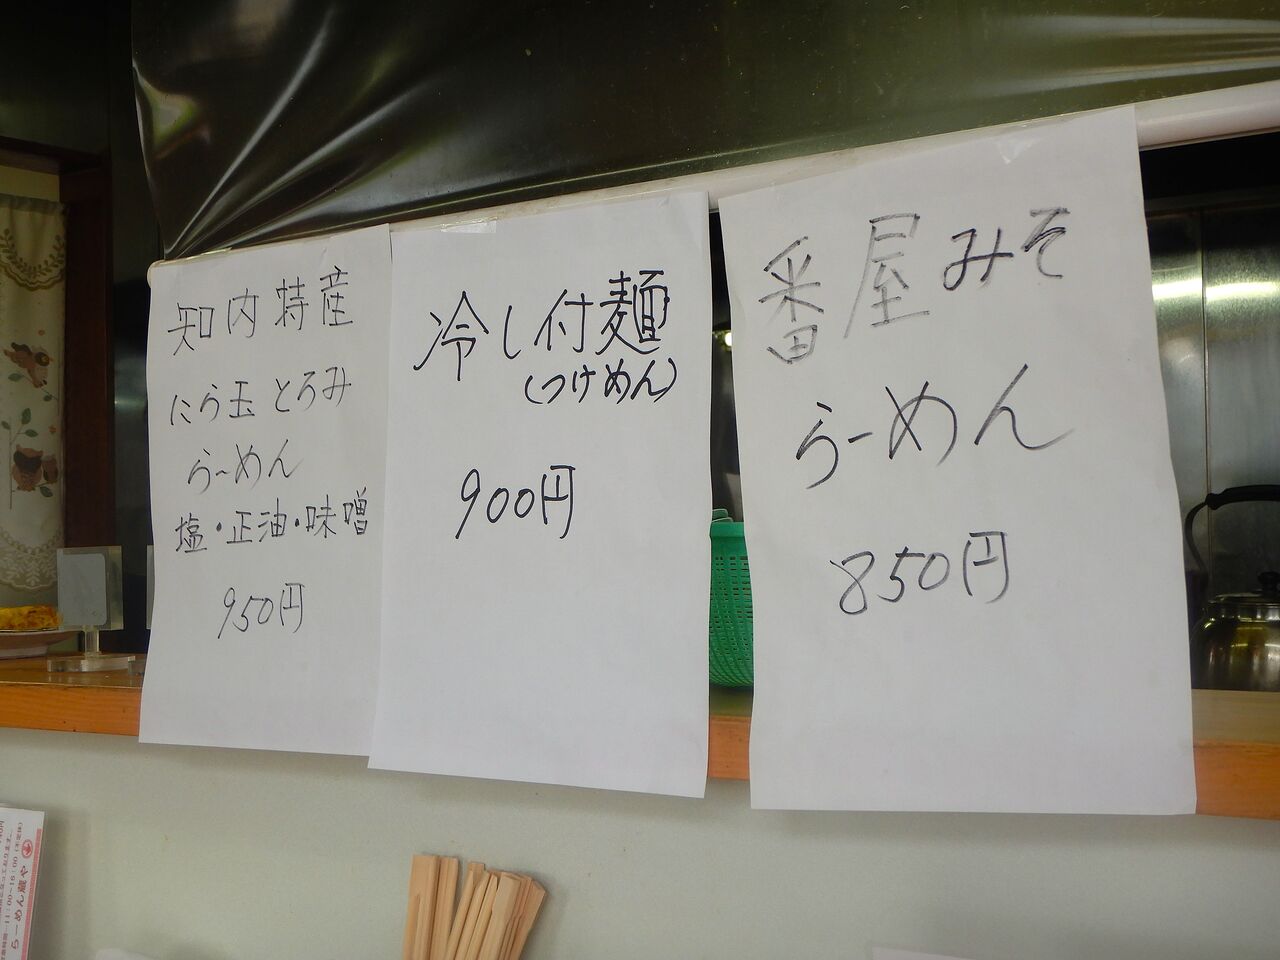 知内特産
にら玉とろみ
らーめん
塩・正油・味噌
950円
冷し付麺
(つけめん)
900円
番屋みそ
らーめん
850円
らーめん蔵や
11:00~15:00